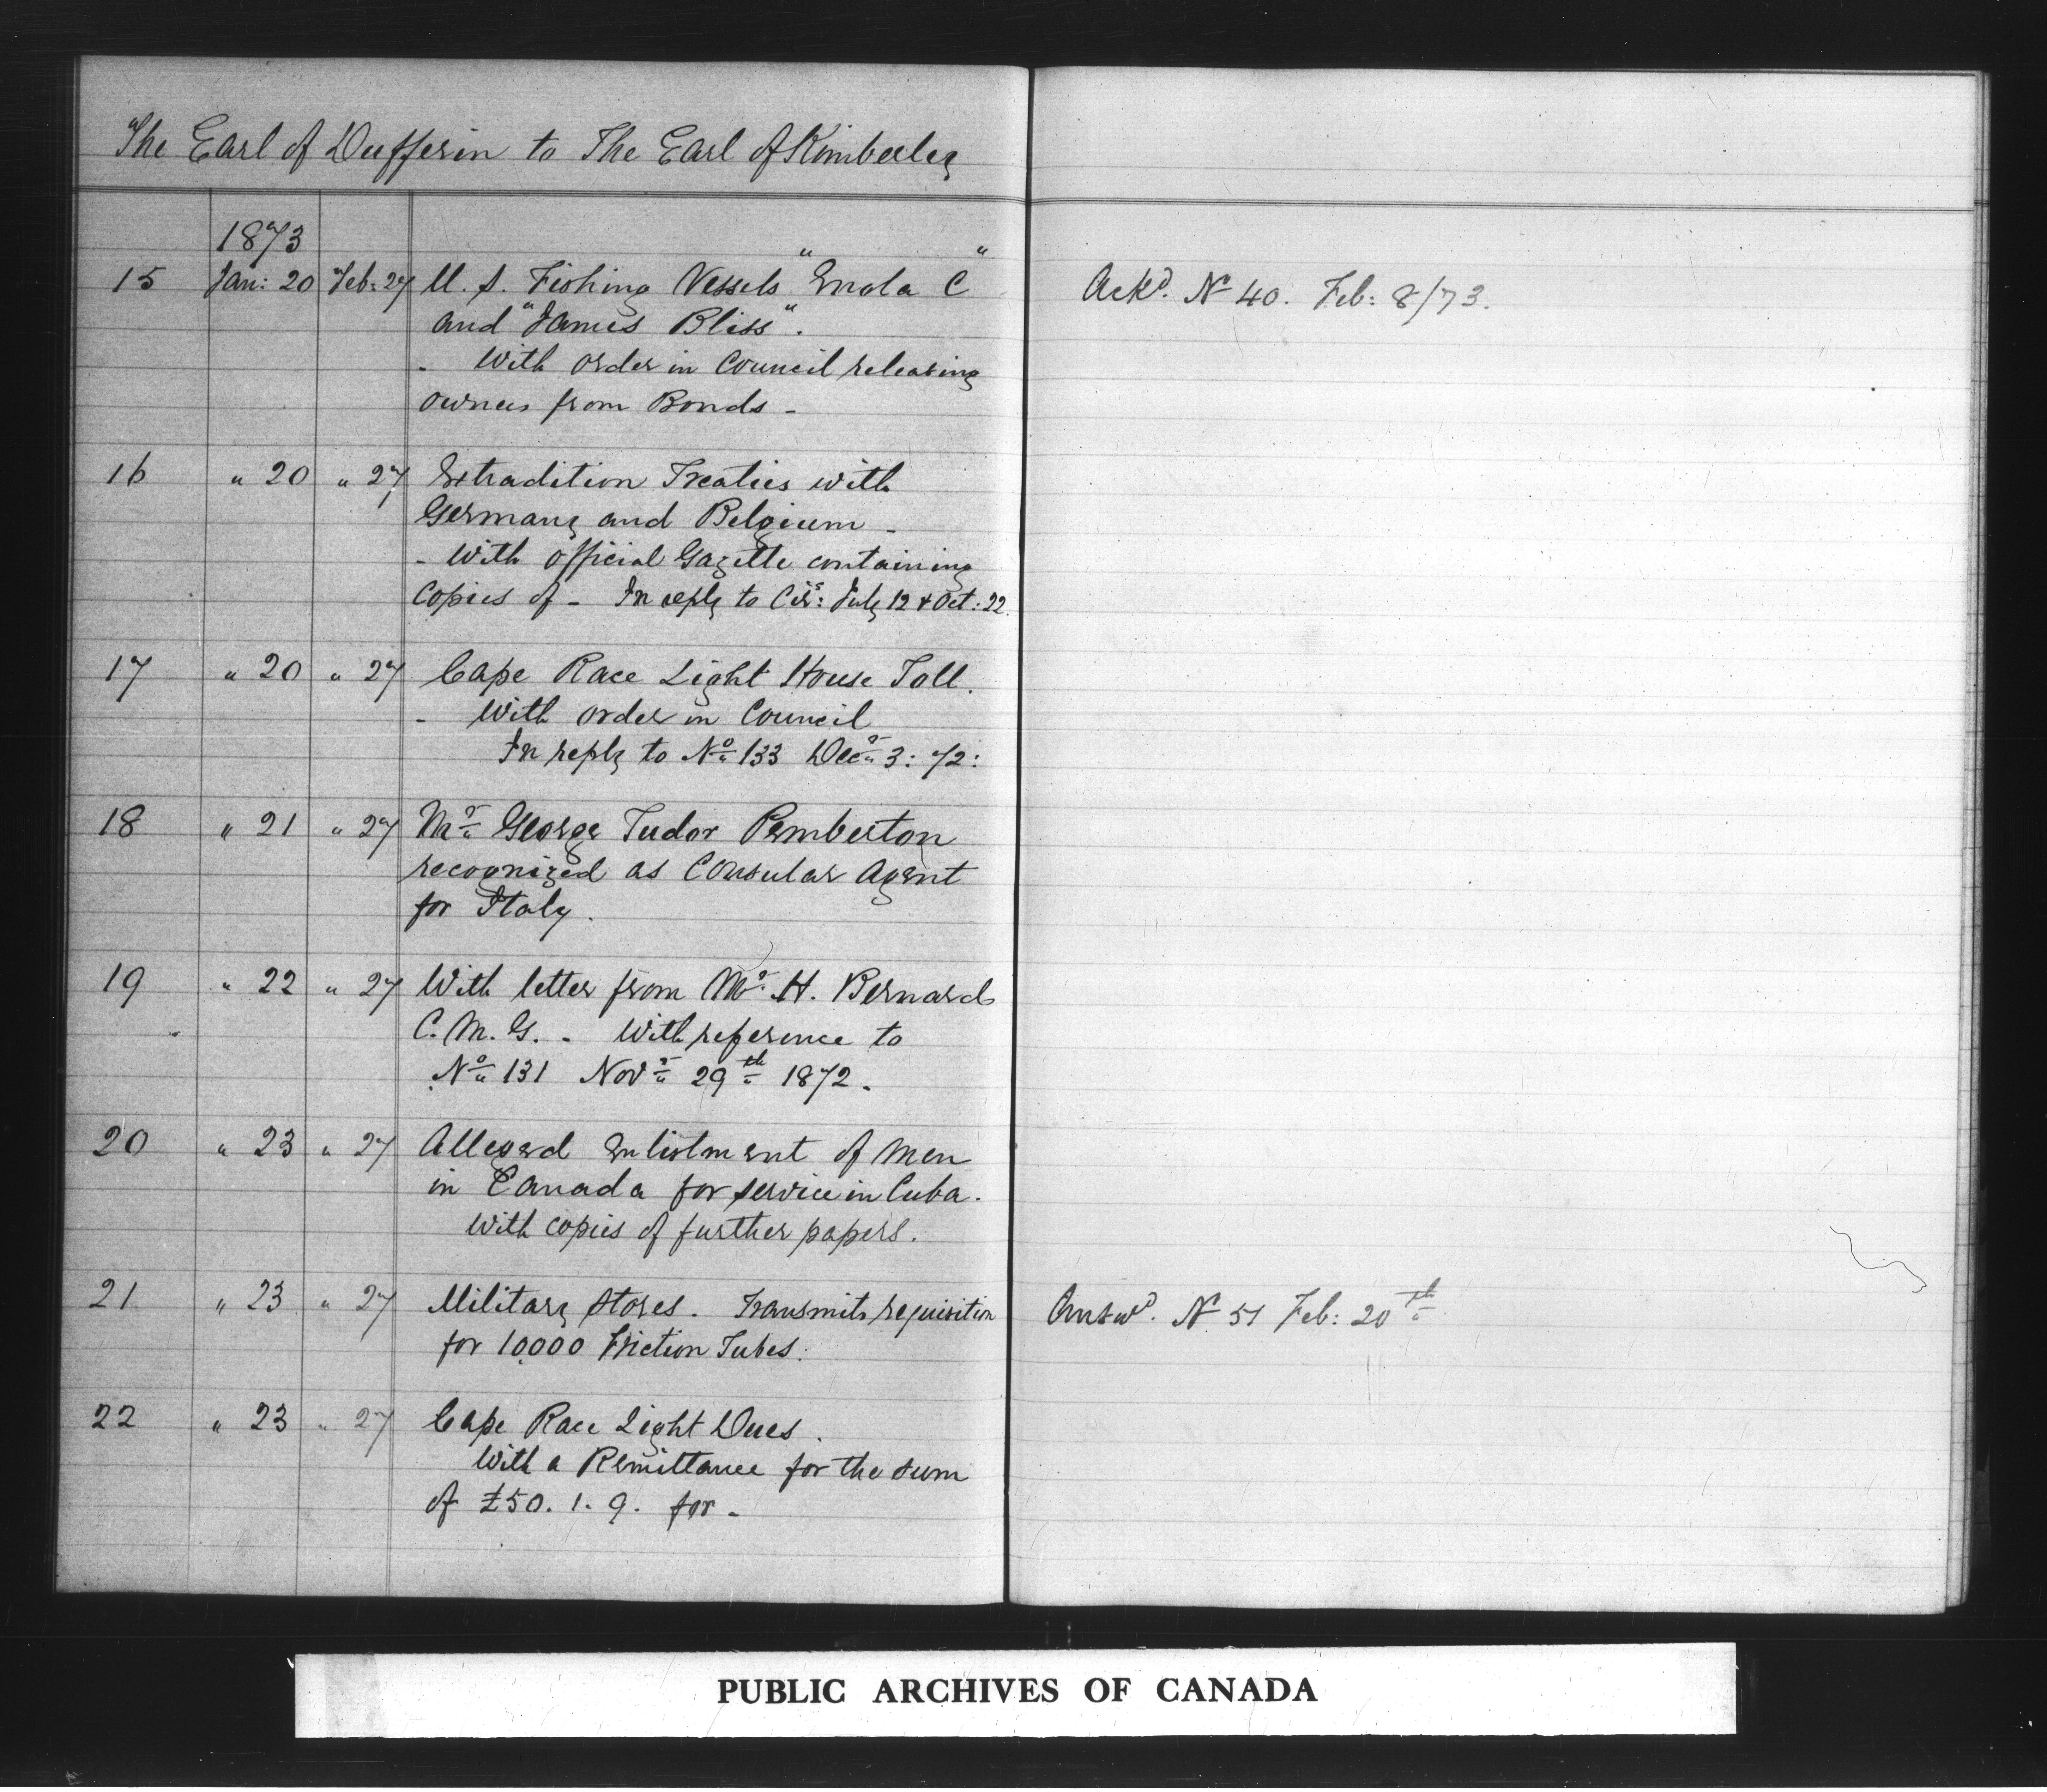 The Earl of Dufferin to The Earl of Kimberley
1873
15 Jan: 20 Feb: 27 U. S. Fishing Vessels "Enola C" Ackd. No 40. Feb: 8/73.
and "James Bliss".
- With order in Council releasing
owners from Bonds -
16 " 20 " 27 Extradition Treaties with
Germany and Belgium -
- With official Gazette containing
copies of - In reply to Cirs: July 12 & Oct: 22.
17 " 20 " 27 Cape Race Light House Toll.
- With order in Council
In reply to No 133 Decr 3: 72:
18 " 21 " 27 Mr George Tudor Pemberton
recognized as Consular Agent
for Italy.
19 " 22 " 27 With letter from Mr. H. Bernard
C. M. G. - With reference to
No 131 Novr 29th 1872.
20 " 23 " 27 Alleged enlistment of men
in Canada for service in Cuba.
With copies of further papers.
21 " 23 " 27 Military Stores. Transmits requisition Answd. No 51 Feb: 20th
for 10,000 Friction Tubes.
22 " 23 " 27 Cape Race Light Dues.
With a Remittance for the sum
of £50. 1. 9. for -
PUBLIC ARCHIVES OF CANADA